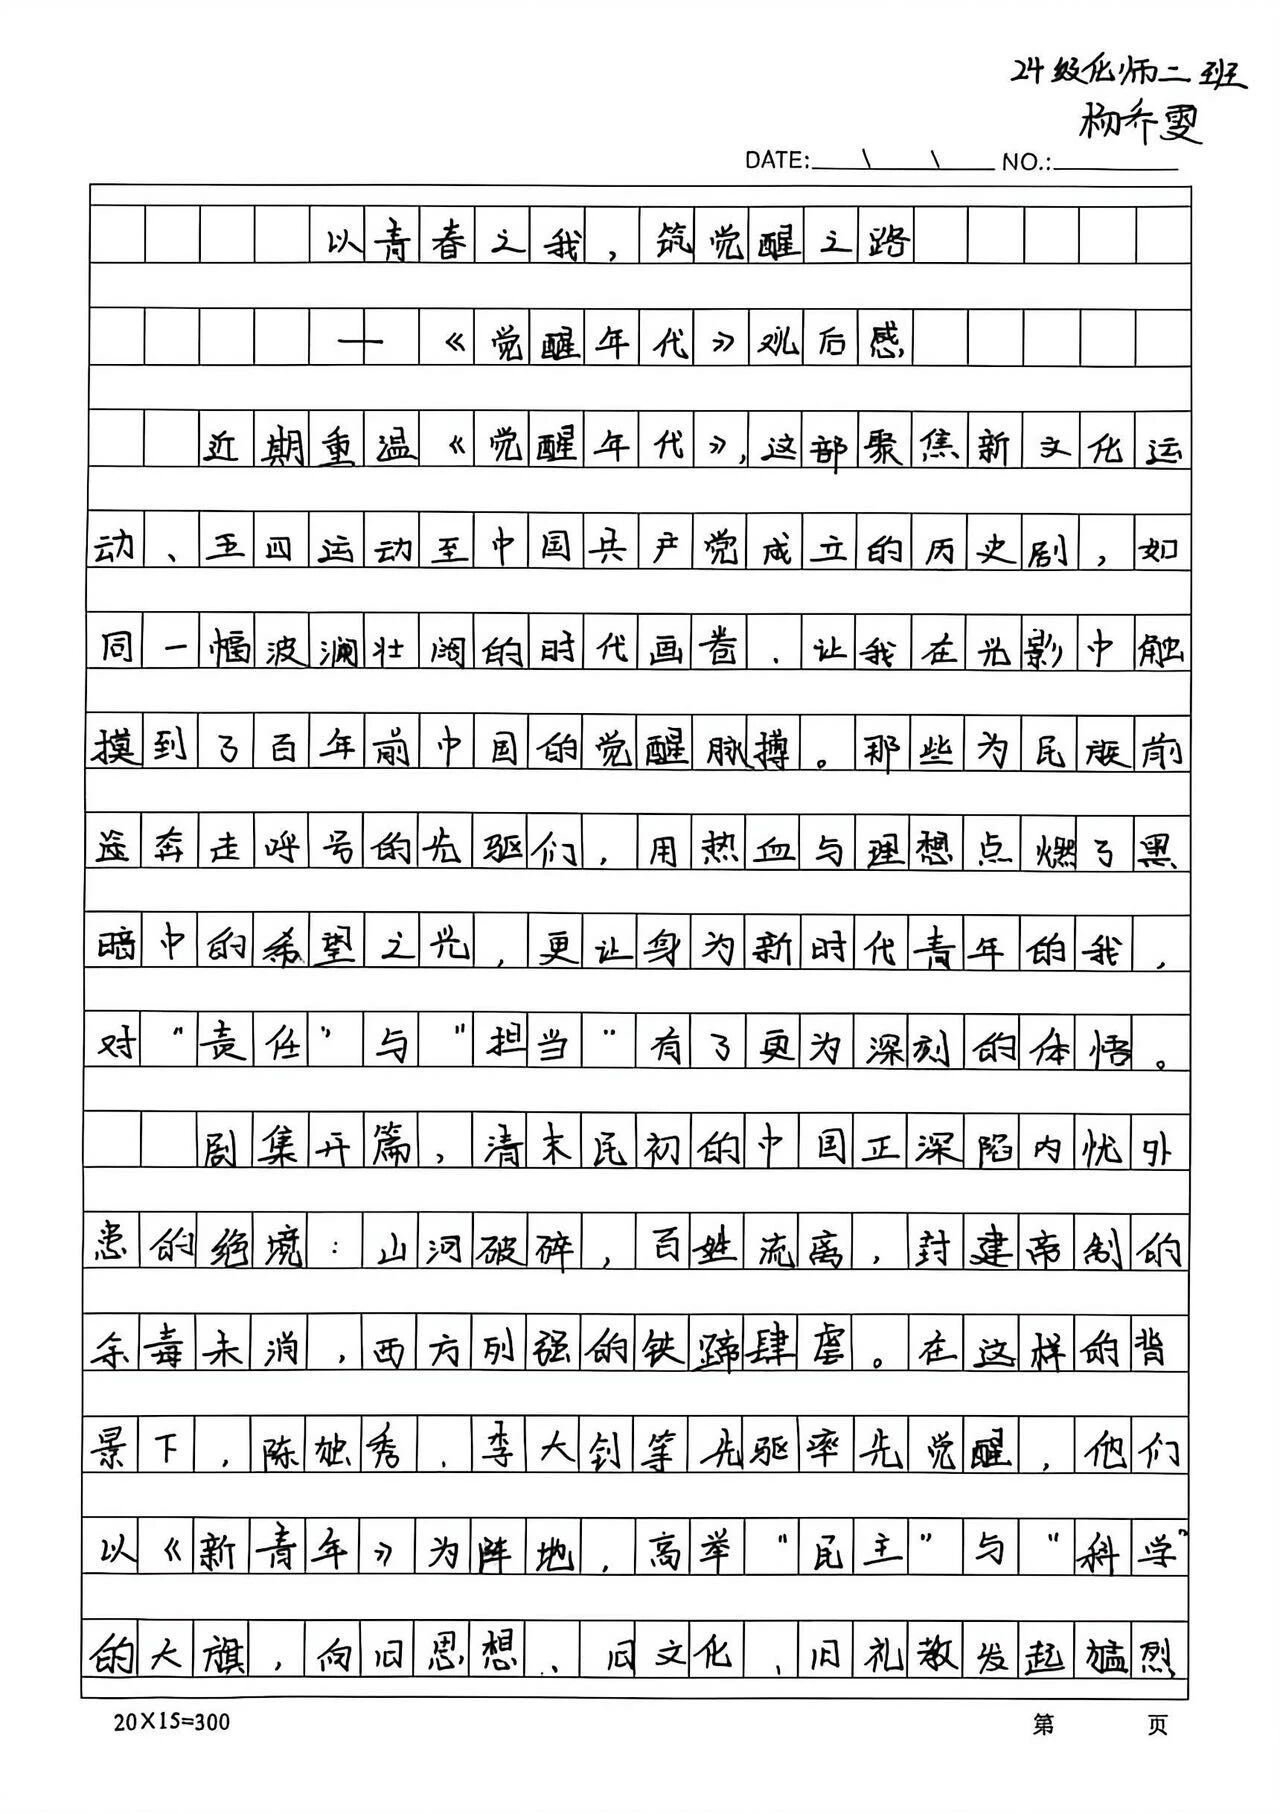 24级化师二班
杨乔雯
DATE: \ \ NO.:
以青春之我,筑觉醒之路
——《觉醒年代》观后感
近期重温《觉醒年代》,这部聚焦新文化运
动、五四运动至中国共产党成立的历史剧,如
同一幅波澜壮阔的时代画卷,让我在光影中触
摸到了百年前中国的觉醒脉搏。那些为民族前
途奔走呼号的先驱们,用热血与理想点燃了黑
暗中的希望之光,更让身为新时代青年的我,
对“责任”与“担当”有了更为深刻的体悟。
剧集开篇,清末民初的中国正深陷内忧外
患的绝境:山河破碎,百姓流离,封建帝制的
余毒未消,西方列强的铁蹄肆虐。在这样的背
景下,陈独秀、李大钊等先驱率先觉醒,他们
以《新青年》为阵地,高举“民主”与“科学”
的大旗,向旧思想、旧文化、旧礼教发起猛烈
20×15=300
第 页